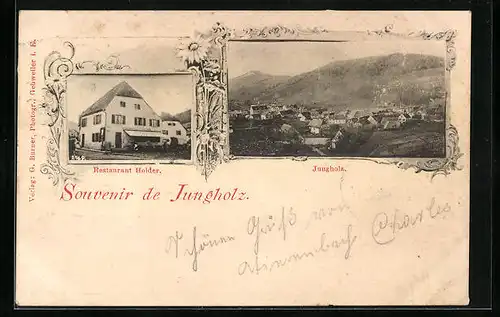 Verlag: G. Burner, Photogr., Gebweiler i. E.
Restaurant Holder.
Jungholz.
Souvenir de Jungholz.
schönen Gruß von
Charles